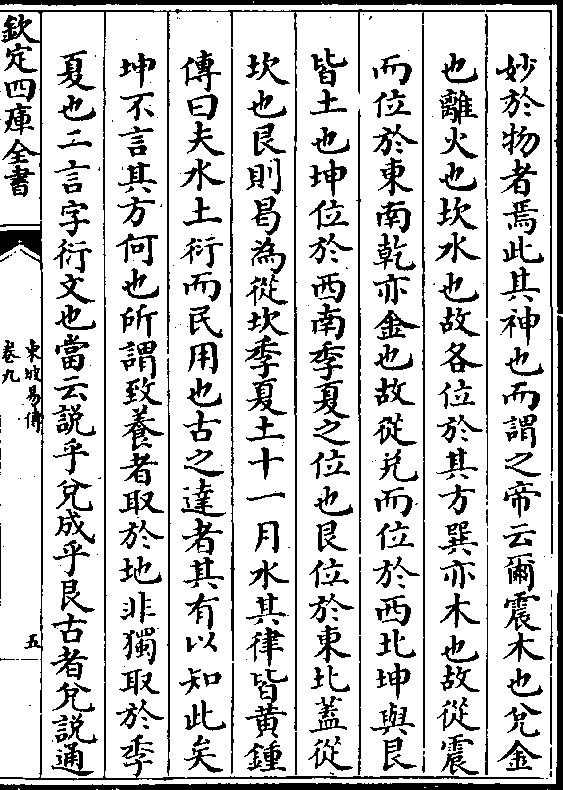 妙於物者焉此其神也而謂之帝云爾震木也兊金
也離火也坎水也故各位於其方巽亦木也故從震
而位於東南乾亦金也故從兊而位於西北坤與艮
皆土也坤位於西南季夏之位也艮位於東北蓋從
坎也艮則曷為從坎季夏土十一月水其律皆黄鍾
傳曰夫水土衍而民用也古之達者其有以知此矣
坤不言其方何也所謂致養者取於地非獨取於季
夏也二言字衍文也當云説乎兊成乎艮古者兊説通
欽定四庫全書
東坡易傳
卷九
五